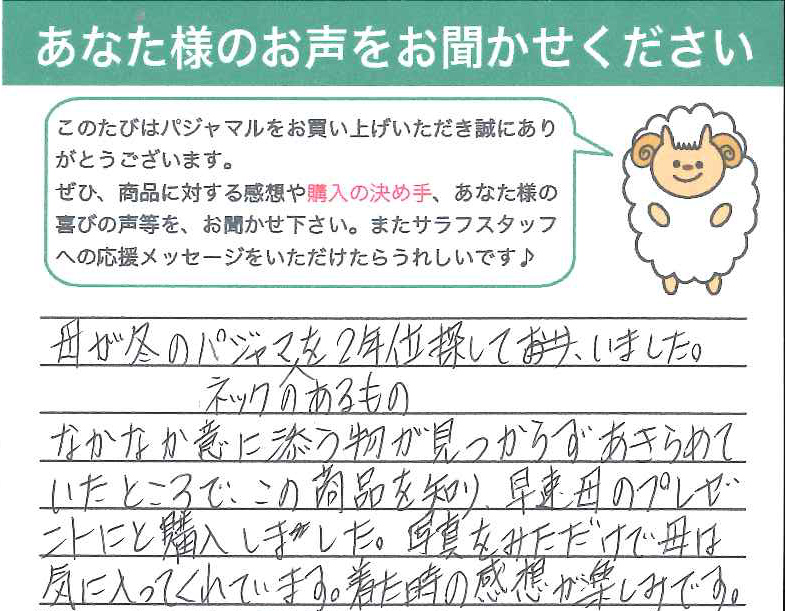 あなた様のお声をお聞かせください
このたびはパジャマルをお買い上げいただき誠にあり
がとうございます。
ぜひ、商品に対する感想や購入の決め手、あなた様の
喜びの声等を、お聞かせ下さい。またサラフスタッフ
への応援メッセージをいただけたらうれしいです♪
母が冬のパジャマを2年位探して、いました。
ネックのあるもの
なかなか意に添う物が見つからずあきらめて
いたところで、この商品を知り、早速母のプレゼ
ントにと購入しました。写真をみただけで母は
気に入ってくれています。着た時の感想が楽しみです。